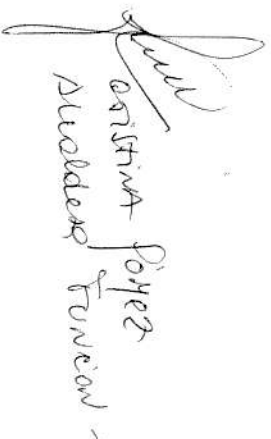 CRistiNA López
Alcaldesa Función